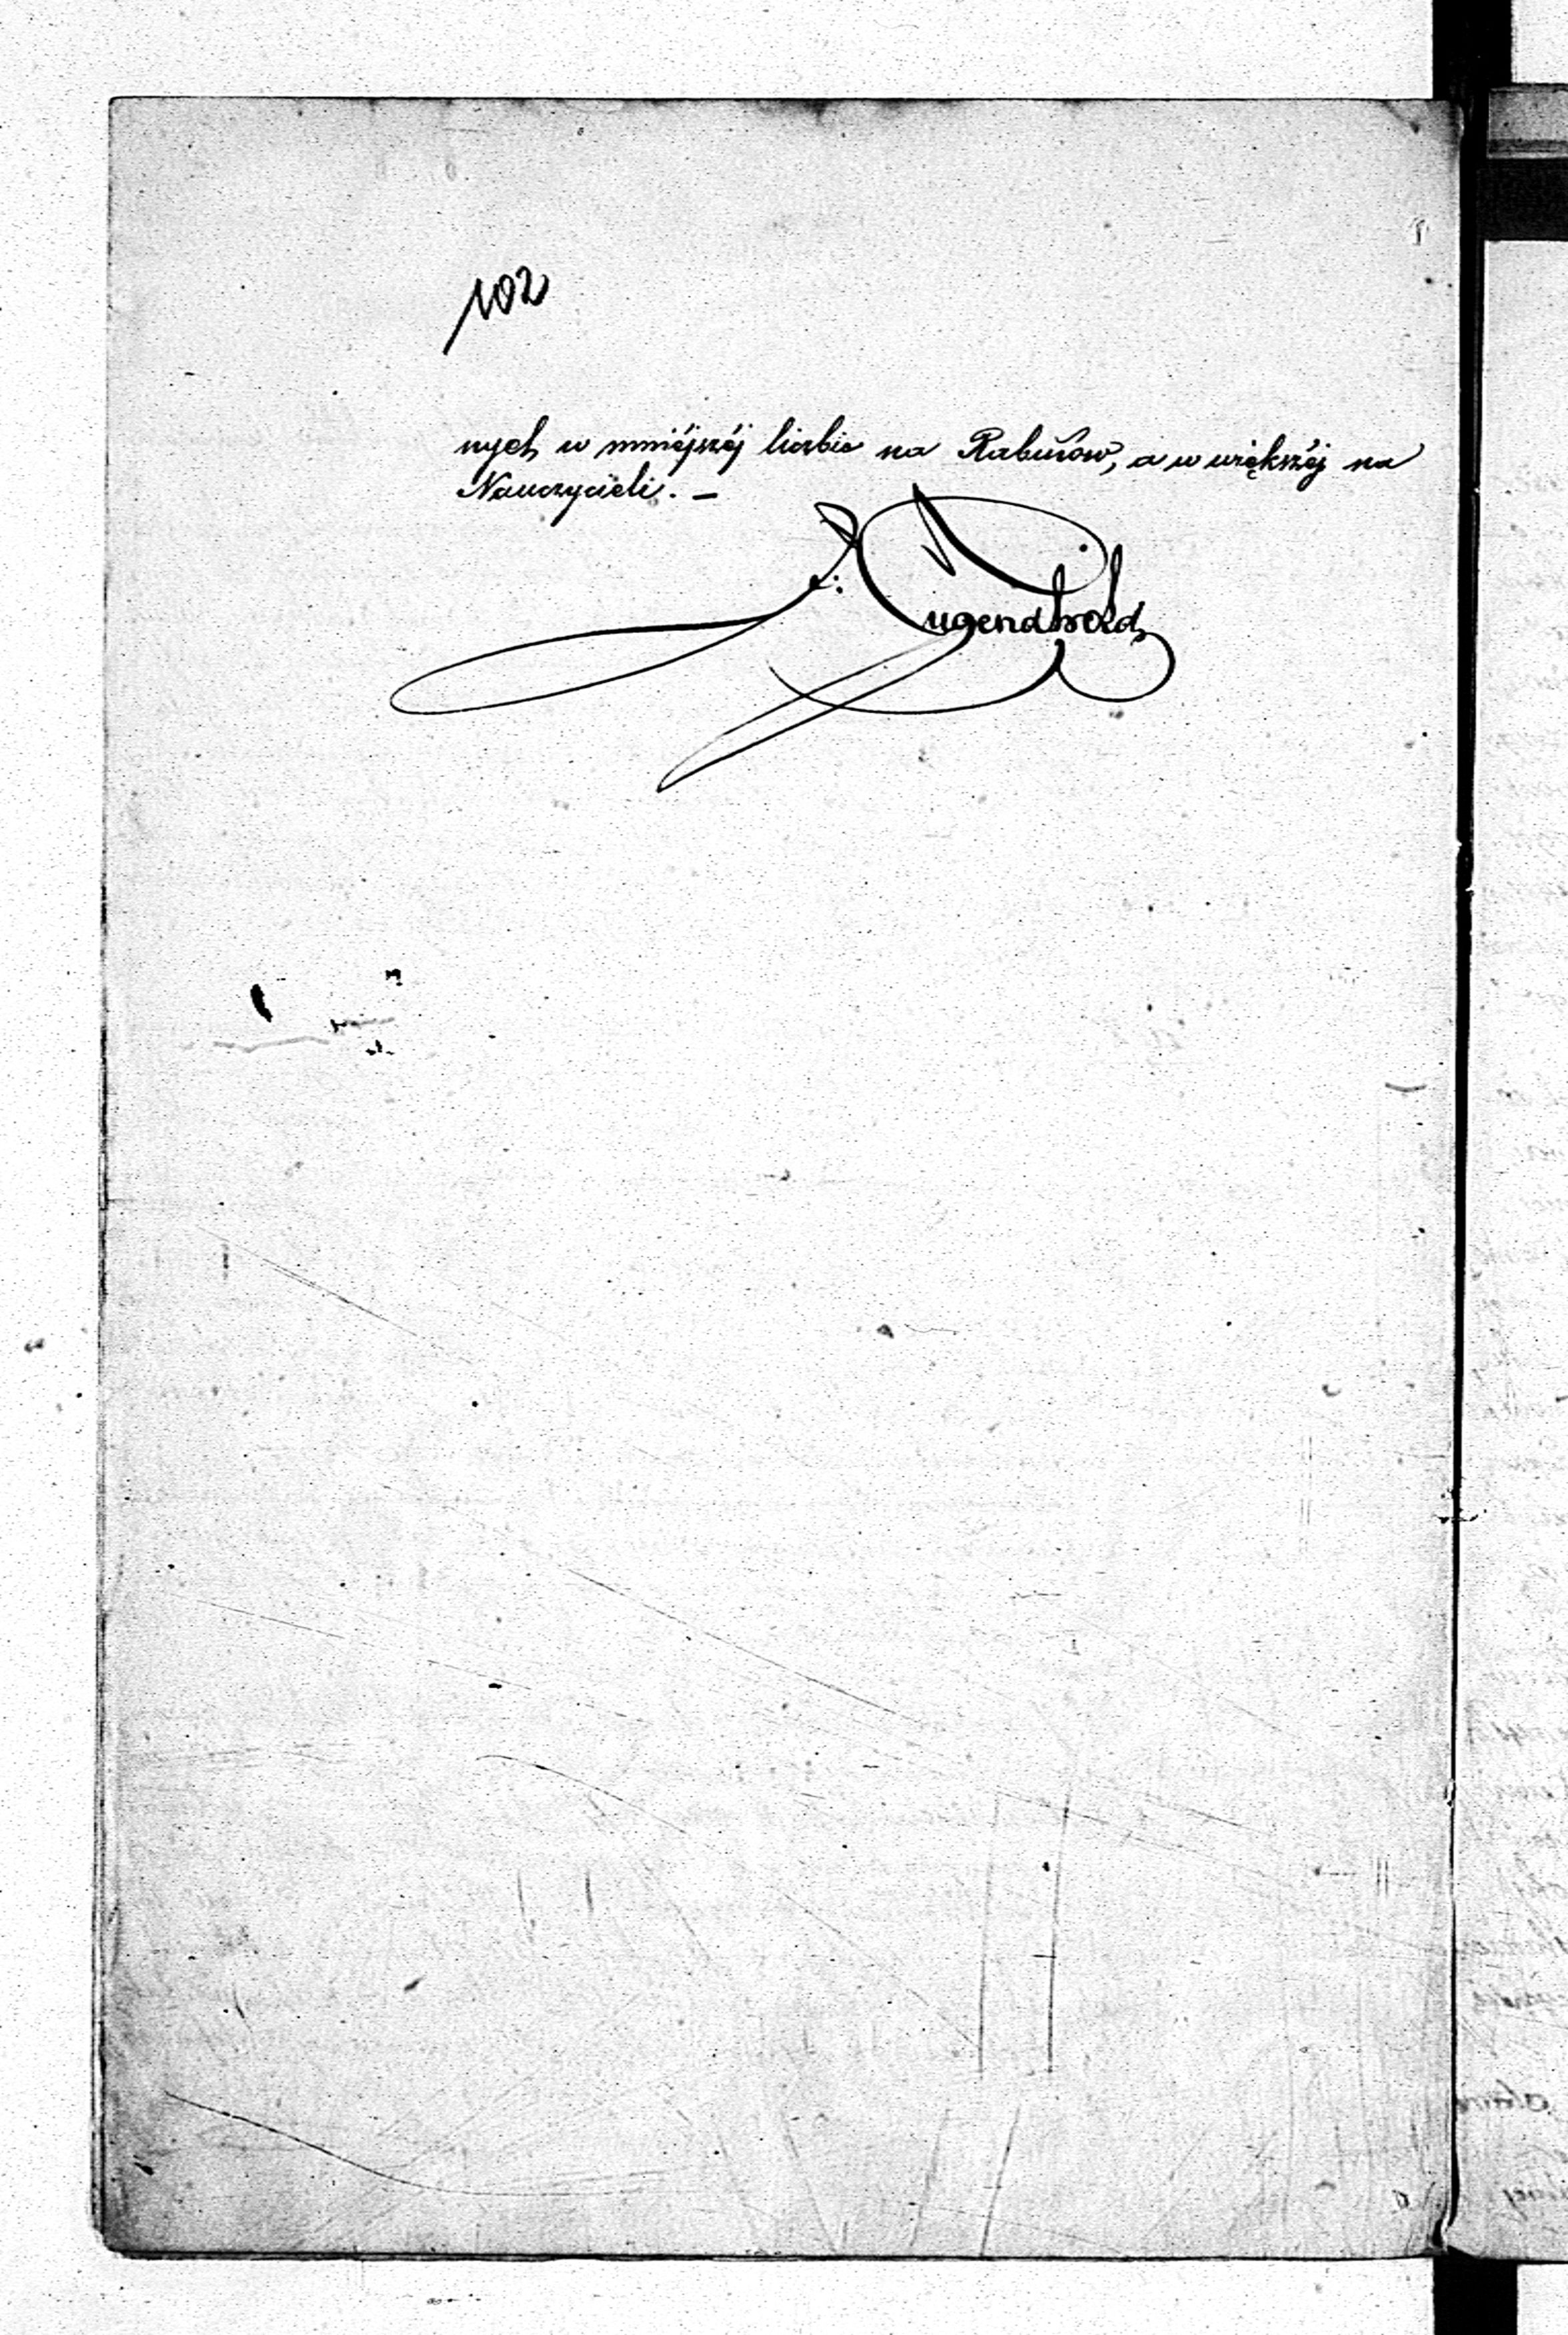 102
nych w mniéjszéj liczbie na Rabinów, a w większéj na
Nauczycieli. —
J: Tugendhold